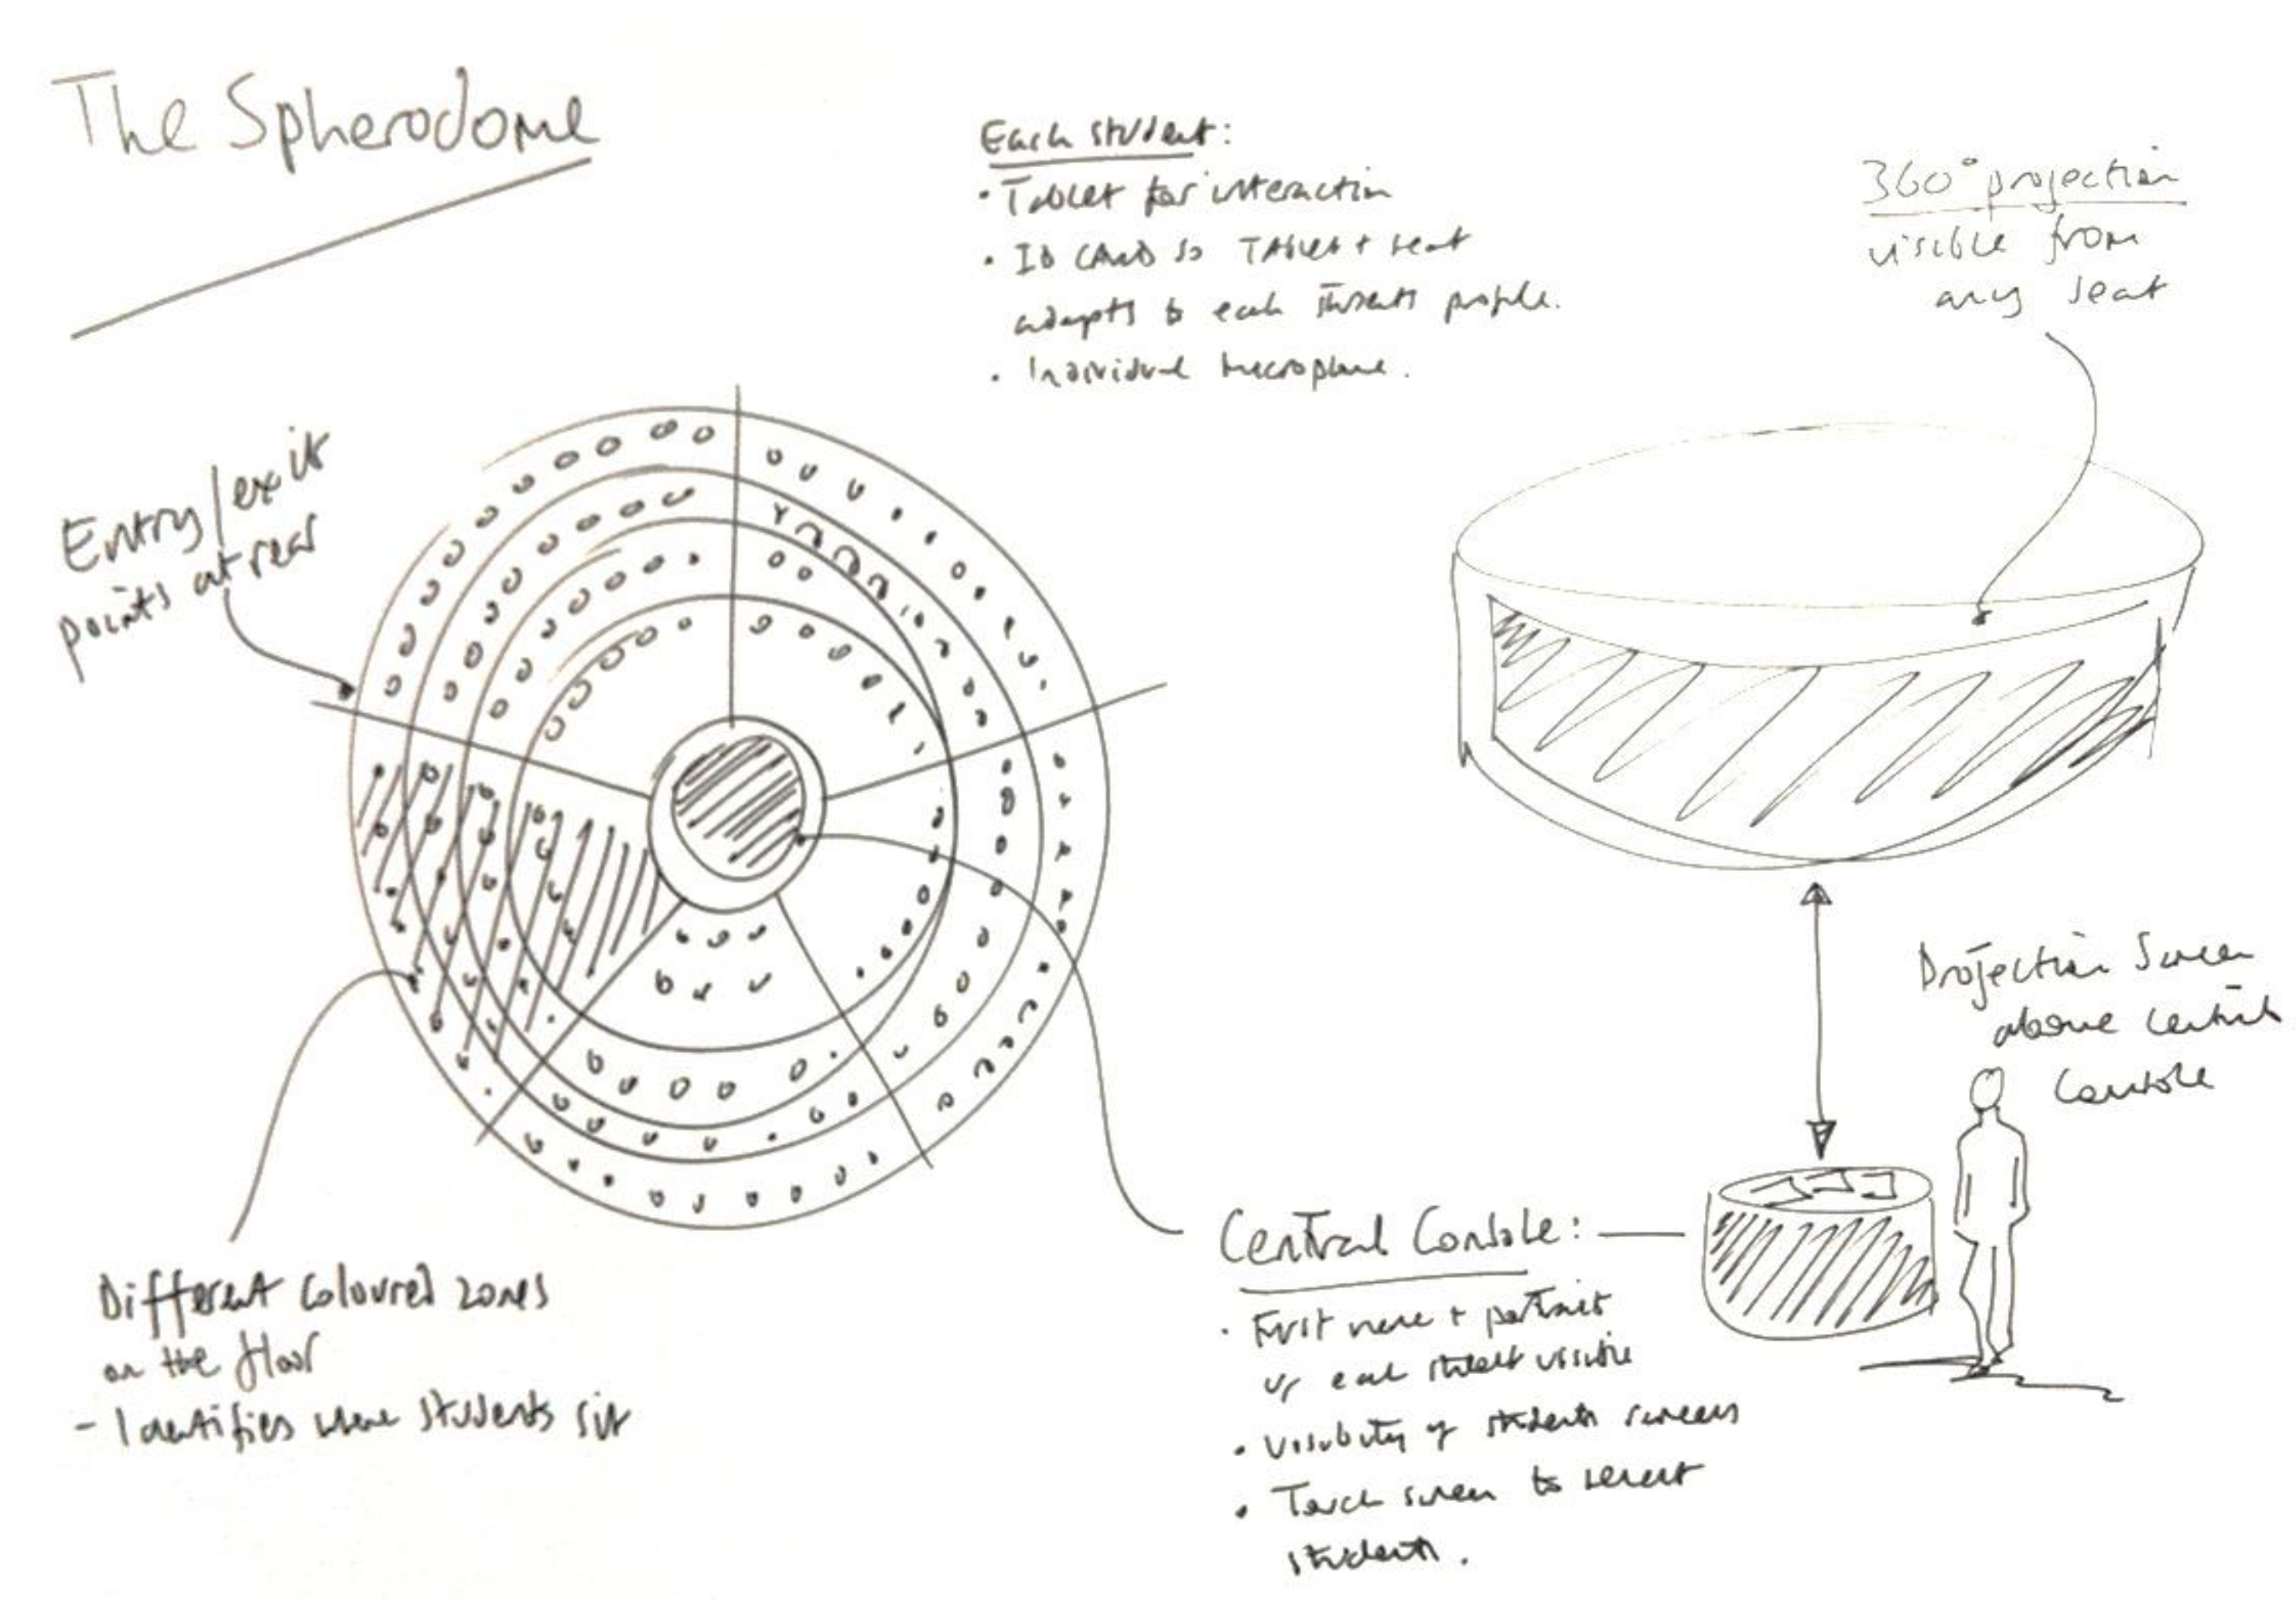 The Spherodome
Each student:
• Tablet for interaction
• ID CARD so TABLET + seat
adapts to each students profile.
• Individual microphone.
360° projection
visible from
any seat
Entry/exit
points at rear
Projection Screen
above central
console
Central Console:
• First name + portrait
of each student visible
• Visibility of students screens
• Touch screen to select
students.
Different coloured zones
on the floor
- Identifies where students sit